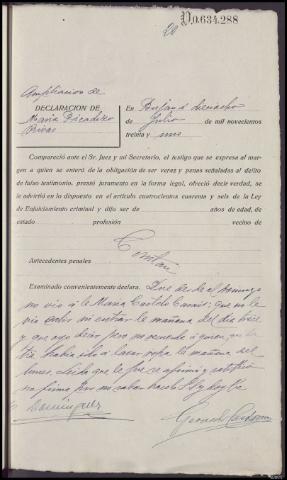 D0.634.288
Ampliacion de
DECLARACION DE
María Picadizo
Rivas
En
de Julio de mil novecientos
treinta y uno
Compareció ante el Sr. Juez y mí Secretario, el testigo que se expresa al mar-
gen a quien se enteró de la obligación de ser veraz y penas señaladas al delito
de falso testimonio, prestó juramento en la forma legal, ofreció decir verdad, se
le advirtió en lo dispuesto en el artículo cuatrocientos cuarenta y seis de la Ley
de Enjuiciamiento criminal y dijo ser de años de edad, de
estado profesión vecino de
Antecedentes penales
Examinado convenientemente declara. Que desde el domingo
no vio a la María que no la
vio entrar la mañana del día trece
y que oyo decir, pero no recuerda a quien, que
había ido a lavar ropa la mañana del
lunes. Leida que le fue se afirmó y ratificó
no firma por no saber hacerlo S Sª y doy fe
Dominguez